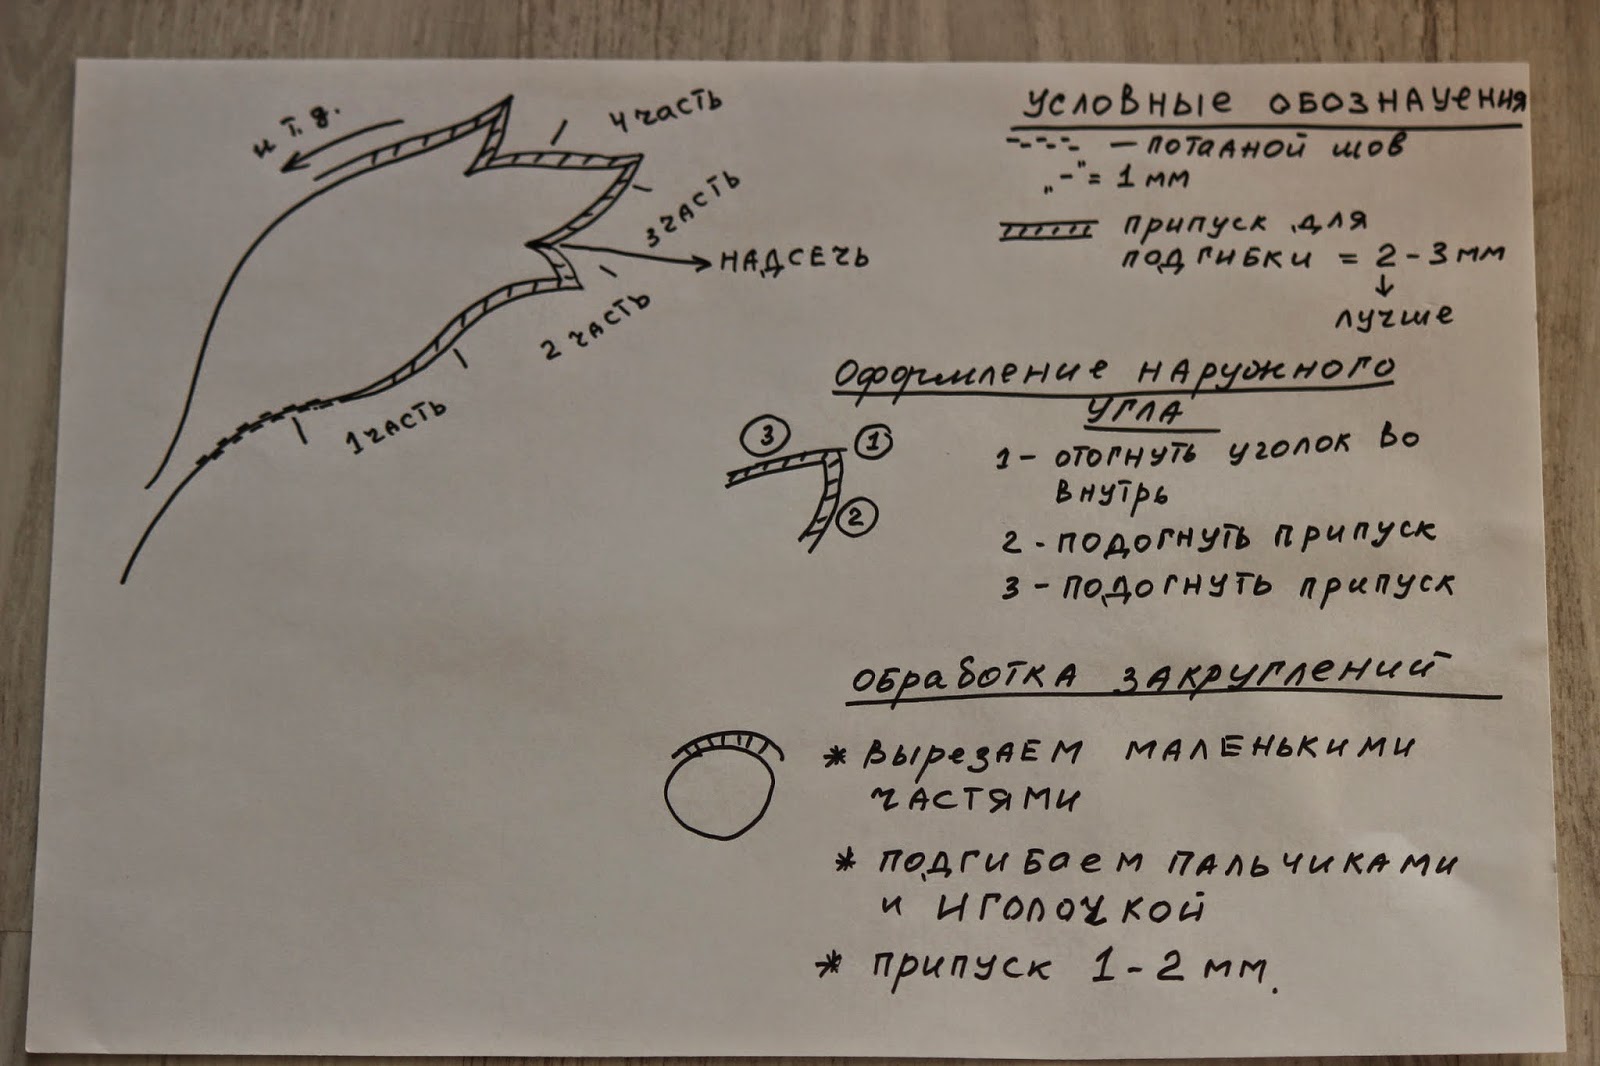 и т. д.
4 часть
3 часть
НАДСЕЧЬ
2 часть
1 часть
УСЛОВНЫЕ ОБОЗНАЧЕНИЯ
---- — ПОТААНОЙ ШОВ
„-" = 1 мм
ПРИПУСК ДЛЯ
ПОДГИБКИ = 2 - 3 мм
↓
лучше
Оформление НАРУЖНОГО
УГЛА
3
1
2
1 - ОТОГНУТЬ УГОЛОК ВО
ВНУТРЬ
2 - ПОДОГНУТЬ ПРИПУСК
3 - ПОДОГНУТЬ ПРИПУСК
ОБРАБОТКА ЗАКРУГЛЕНИЙ
* ВЫРЕЗАЕМ МАЛЕНЬКИМИ
ЧАСТЯМИ
* ПОДГИБАЕМ ПАЛЬЧИКАМИ
И ИГОЛОЧКОЙ
* ПРИПУСК 1 - 2 мм.